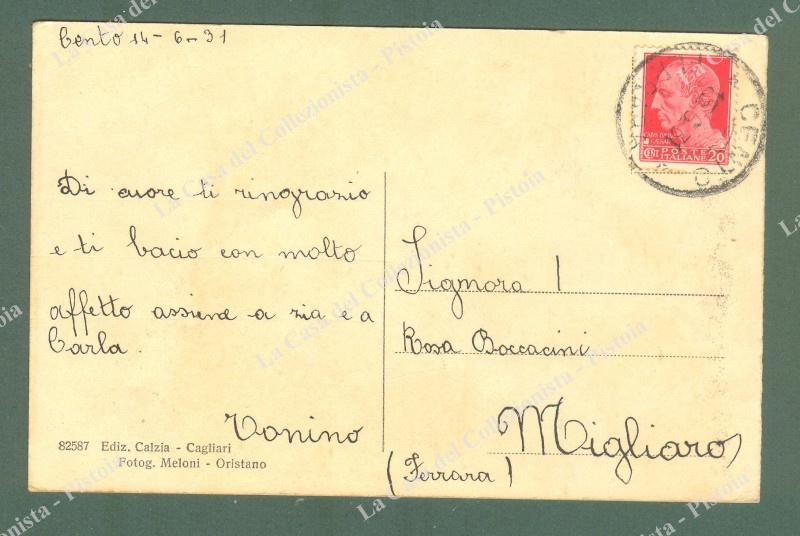 Cento 14-6-31
CENTO
CAIO GIULIO CESARE
POSTE
CENT ITALIANE 20
Di cuore ti ringrazio
e ti bacio con molto
affetto assieme a zia e a
Carla.
Tonino
Signora
Rosa Boccacini
Migliaro
(Ferrara)
82587 Ediz. Calzia - Cagliari
Fotog. Meloni - Oristano
La Casa del Collezionista - Pistoia